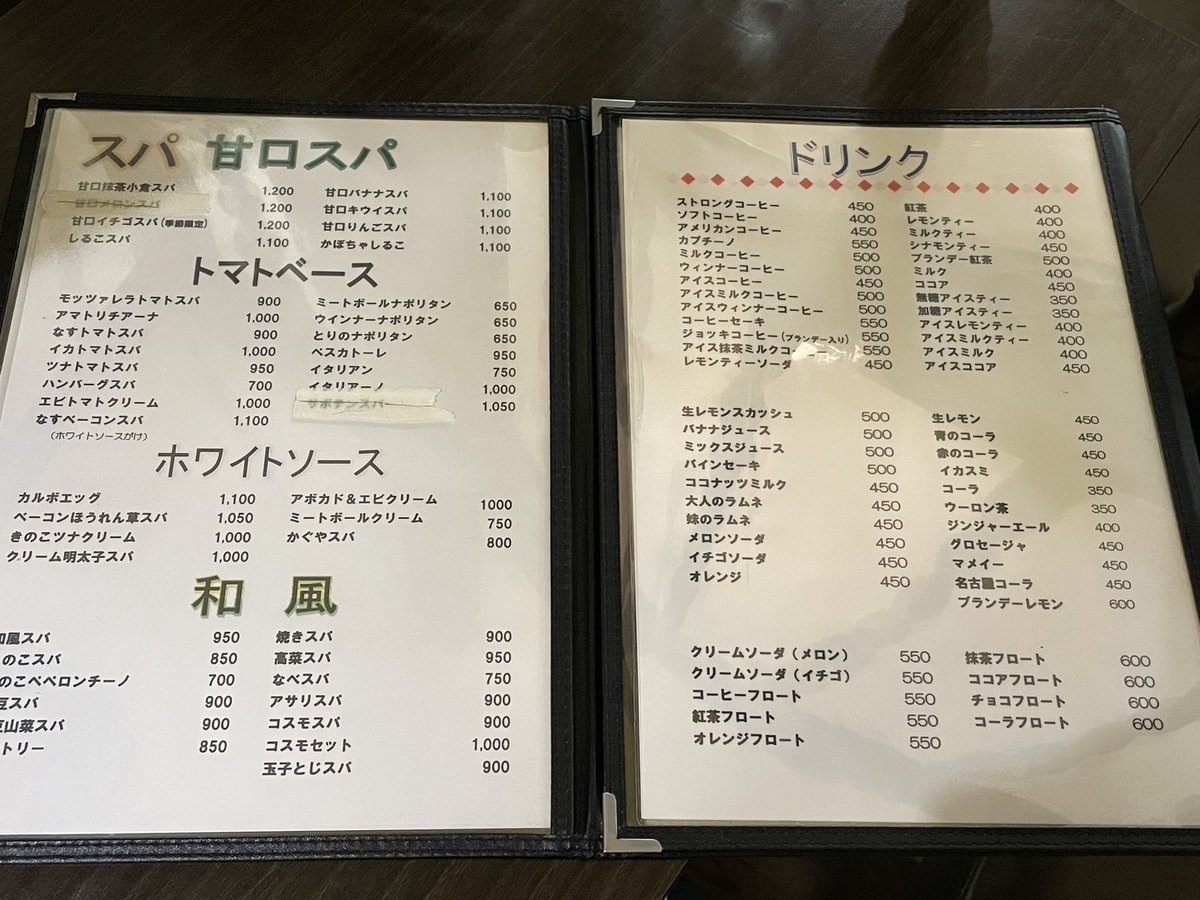 スパ 甘口スパ
甘口抹茶小倉スパ 1,200
甘口メロンスパ 1,200
甘口イチゴスパ(季節限定) 1,200
しるこスパ 1,100
甘口バナナスパ 1,100
甘口キウイスパ 1,100
甘口りんごスパ 1,100
かぼちゃしるこ 1,100
トマトベース
モッツァレラトマトスパ 900
アマトリチアーナ 1,000
なすトマトスパ 900
イカトマトスパ 1,000
ツナトマトスパ 950
ハンバーグスパ 700
エビトマトクリーム 1,000
なすベーコンスパ 1,100
(ホワイトソースがけ)
ミートボールナポリタン 650
ウインナーナポリタン 650
とりのナポリタン 650
ペスカトーレ 950
イタリアン 750
イタリアーノ 1,000
サボテンスパ 1,050
ホワイトソース
カルボエッグ 1,100
ベーコンほうれん草スパ 1,050
きのこツナクリーム 1,000
クリーム明太子スパ 1,000
アボカド&エビクリーム 1000
ミートボールクリーム 750
かぐやスパ 800
和 風
和風スパ 950
のこスパ 850
のこペペロンチーノ 700
豆スパ 900
山菜スパ 900
トリー 850
焼きスパ 900
高菜スパ 950
なべスパ 750
アサリスパ 900
コスモスパ 900
コスモセット 1,000
玉子とじスパ 900
ドリンク
ストロングコーヒー 450
ソフトコーヒー 400
アメリカンコーヒー 450
カプチーノ 550
ミルクコーヒー 500
ウィンナーコーヒー 500
アイスコーヒー 450
アイスミルクコーヒー 500
アイスウィンナーコーヒー 500
コーヒーセーキ 550
ジョッキコーヒー(ブランデー入り) 550
アイス抹茶ミルクコーヒー 550
レモンティーソーダ 450
紅茶 400
レモンティー 400
ミルクティー 400
シナモンティー 450
ブランデー紅茶 500
ミルク 400
ココア 450
無糖アイスティー 350
加糖アイスティー 350
アイスレモンティー 400
アイスミルクティー 400
アイスミルク 400
アイスココア 450
生レモンスカッシュ 500
バナナジュース 500
ミックスジュース 500
パインセーキ 500
ココナッツミルク 450
大人のラムネ 450
妹のラムネ 450
メロンソーダ 450
イチゴソーダ 450
オレンジ 450
生レモン 450
青のコーラ 450
赤のコーラ 450
イカスミ 450
コーラ 350
ウーロン茶 350
ジンジャーエール 400
グロセージャ 450
マメイー 450
名古屋コーラ 450
ブランデーレモン 600
クリームソーダ(メロン) 550
クリームソーダ(イチゴ) 550
コーヒーフロート 550
紅茶フロート 550
オレンジフロート 550
抹茶フロート 600
ココアフロート 600
チョコフロート 600
コーラフロート 600